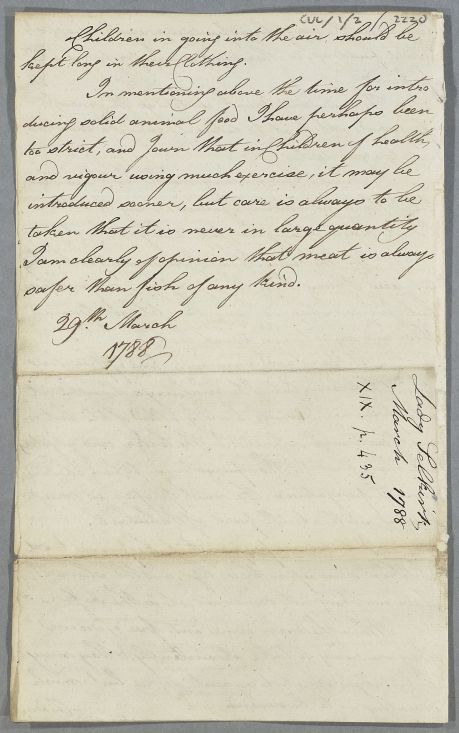 CUL/1/2/2220
Children in going into the air, should be
kept long in their Clothing.
In mentioning above the time for intro
ducing solid animal food I have perhaps been
too strict, and I own that in Children of health,
and vigour using much exercise, it may be
introduced sooner, but care is always to be
taken that it is never in large quantity
I am clearly of opinion that meat is always
safer than fish of any kind.
29.th March
1788
Lady Selkirk
March 1788
XIX. p. 435